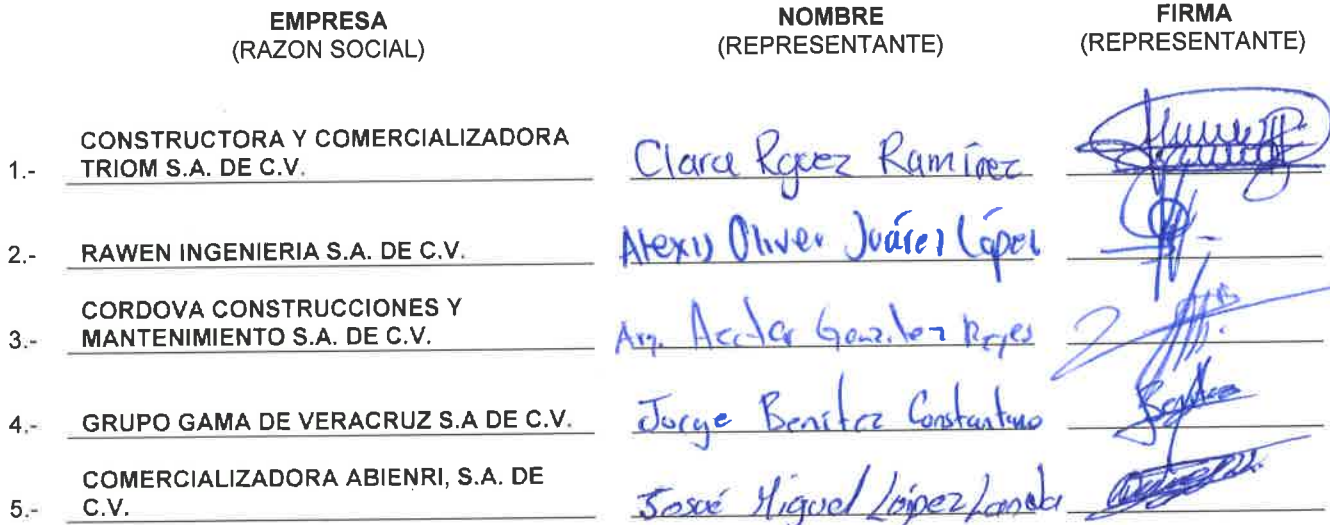 EMPRESA NOMBRE FIRMA
(RAZON SOCIAL) (REPRESENTANTE) (REPRESENTANTE)
CONSTRUCTORA Y COMERCIALIZADORA
1.- TRIOM S.A. DE C.V. Clara Rguez Ramírez
2.- RAWEN INGENIERIA S.A. DE C.V. Alexis Oliver Juárez López
CORDOVA CONSTRUCCIONES Y
3.- MANTENIMIENTO S.A. DE C.V. Arq. González Reyes
4.- GRUPO GAMA DE VERACRUZ S.A DE C.V. Jorge Benítez Constantino
COMERCIALIZADORA ABIENRI, S.A. DE
5.- C.V. Josué Miguel López Landa